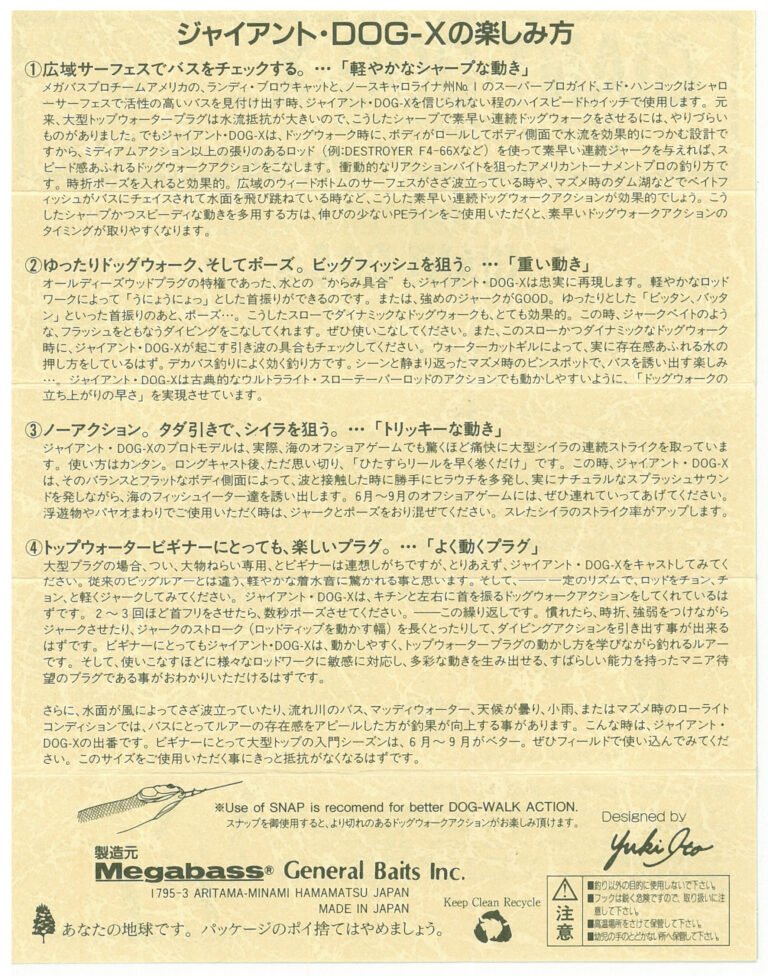 ジャイアント・DOG-Xの楽しみ方
①広域サーフェスでバスをチェックする。…「軽やかなシャープな動き」
メガバスプロチームアメリカの、ランディ・ブロウキャットと、ノースキャロライナ州No.1のスーパープロガイド、エド・ハンコックはシャロ
ーサーフェスで活性の高いバスを見付け出す時、ジャイアント・DOG-Xを信じられない程のハイスピードトゥイッチで使用します。元
来、大型トップウォータープラグは水流抵抗が大きいので、こうしたシャープで素早い連続ドッグウォークをさせるには、やりづらい
ものがありました。でもジャイアント・DOG-Xは、ドッグウォーク時に、ボディがロールしてボディ側面で水流を効果的につかむ設計で
すから、ミディアムアクション以上の張りのあるロッド（例:DESTROYER F4-66Xなど）を使って素早い連続ジャークを与えれば、ス
ピード感あふれるドッグウォークアクションをこなします。衝動的なリアクションバイトを狙ったアメリカントーナメントプロの釣り方で
す。時折ポーズを入れると効果的。広域のウィードボトムのサーフェスがさざ波立っている時や、マズメ時のダム湖などでベイトフ
ィッシュがバスにチェイスされて水面を飛び跳ねている時など、こうした素早い連続ドッグウォークアクションが効果的でしょう。こう
したシャープかつスピーディな動きを多用する方は、伸びの少ないPEラインをご使用いただくと、素早いドッグウォークアクションの
タイミングが取りやすくなります。
②ゆったりドッグウォーク、そしてポーズ。ビッグフィッシュを狙う。…「重い動き」
オールディーズウッドプラグの特権であった、水との“からみ具合”も、ジャイアント・DOG-Xは忠実に再現します。軽やかなロッド
ワークによって「うにょうにょっ」とした首振りができるのです。または、強めのジャークがGOOD。ゆったりとした「ビッタン、バッタ
ン」といった首振りのあと、ポーズ…。こうしたスローでダイナミックなドッグウォークも、とても効果的。この時、ジャークベイトのよう
な、フラッシュをともなうダイビングをこなしてくれます。ぜひ使いこなしてください。また、このスローかつダイナミックなドッグウォーク
時に、ジャイアント・DOG-Xが起こす引き波の具合もチェックしてください。ウォーターカットギルによって、実に存在感あふれる水の
押し方をしているはず。デカバス釣りによく効く釣り方です。シーンと静まり返ったマズメ時のピンスポットで、バスを誘い出す楽しみ
…。ジャイアント・DOG-Xは古典的なウルトラライト・スローテーパーロッドのアクションでも動かしやすいように、「ドッグウォークの
立ち上がりの早さ」を実現させています。
③ノーアクション。タダ引きで、シイラを狙う。…「トリッキーな動き」
ジャイアント・DOG-Xのプロトモデルは、実際、海のオフショアゲームでも驚くほど痛快に大型シイラの連続ストライクを取っていま
す。使い方はカンタン。ロングキャスト後、ただ思い切り、「ひたすらリールを早く巻くだけ」です。この時、ジャイアント・DOG-X
は、そのバランスとフラットなボディ側面によって、波と接触した時に勝手にヒラウチを多発し、実にナチュラルなスプラッシュサウン
ドを発しながら、海のフィッシュイーター達を誘い出します。6月〜9月のオフショアゲームには、ぜひ連れていってあげてください。
浮遊物やパヤオまわりでご使用いただく時は、ジャークとポーズをおり混ぜてください。スレたシイラのストライク率がアップします。
④トップウォータービギナーにとっても、楽しいプラグ。…「よく動くプラグ」
大型プラグの場合、つい、大物ねらい専用、とビギナーは連想しがちですが、とりあえず、ジャイアント・DOG-Xをキャストしてみてく
ださい。従来のビッグルアーとは違う、軽やかな着水音に驚かれる事と思います。そして、――一定のリズムで、ロッドをチョン、チ
ョン、と軽くジャークしてみてください。ジャイアント・DOG-Xは、キチンと左右に首を振るドッグウォークアクションをしてくれているは
ずです。2〜3回ほど首フリをさせたら、数秒ポーズさせてください。――この繰り返しです。慣れたら、時折、強弱をつけながら
ジャークさせたり、ジャークのストローク（ロッドティップを動かす幅）を長くとったりして、ダイビングアクションを引き出す事が出来る
はずです。ビギナーにとってもジャイアント・DOG-Xは、動かしやすく、トップウォータープラグの動かし方を学びながら釣れるルアー
です。そして、使いこなすほどに様々なロッドワークに敏感に対応し、多彩な動きを生み出せる、すばらしい能力を持ったマニア待
望のプラグである事がおわかりいただけるはずです。
さらに、水面が風によってさざ波立っていたり、流れ川のバス、マッディウォーター、天候が曇り、小雨、またはマズメ時のローライト
コンディションでは、バスにとってルアーの存在感をアピールした方が釣果が向上する事があります。こんな時は、ジャイアント・
DOG-Xの出番です。ビギナーにとって大型トップの入門シーズンは、6月〜9月がベター。ぜひフィールドで使い込んでみてくだ
さい。このサイズをご使用いただく事にきっと抵抗がなくなるはずです。
※Use of SNAP is recomend for better DOG-WALK ACTION.
スナップを御使用すると、より切れのあるドッグウォークアクションがお楽しみ頂けます。
Designed by
Yuki Ito
製造元
Megabass® General Baits Inc.
1795-3 ARITAMA-MINAMI HAMAMATSU JAPAN
MADE IN JAPAN
Keep Clean Recycle
あなたの地球です。パッケージのポイ捨てはやめましょう。
注意
■釣り以外の目的に使用しないで下さい。
■フックは鋭く危険ですので、取り扱いに注
意して下さい。
■高温場所をさけて保管して下さい。
■幼児の手のとどかない所へ保管して下さい。